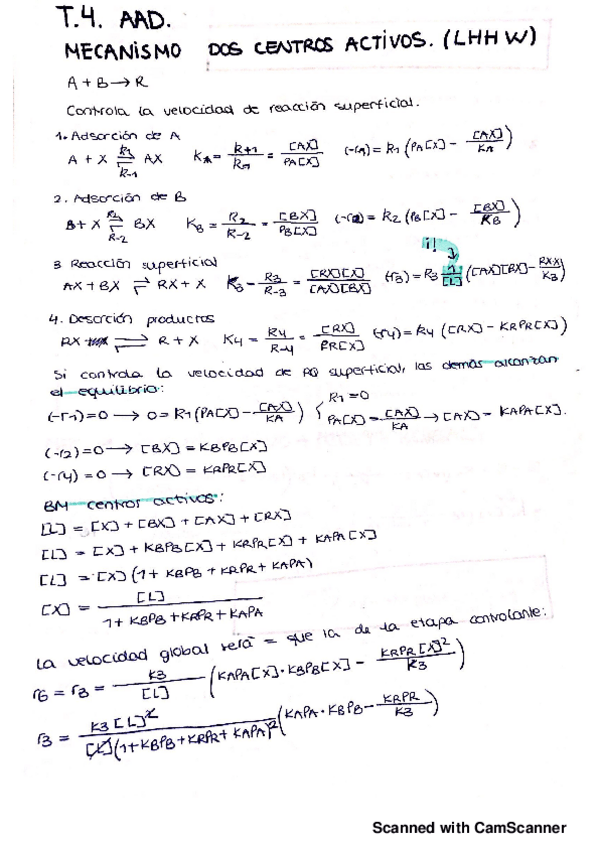 T.4. AAD.
MECANISMO DOS CENTROS ACTIVOS. (LHHW)
A + B → R
Controla la velocidad de reacción superficial.
1. Adsorción de A
A + X ⇌ AX   k1 / k-1   KA = k+1/k-1 = [AX]/PA[X]   (-r1) = k1 (PA[X] - [AX]/KA)
2. Adsorción de B
B + X ⇌ BX   k2 / k-2   KB = k2/k-2 = [BX]/PB[X]   (-r2) = k2 (PB[X] - [BX]/KB)
¡!
3 Reacción superficial
AX + BX ⇌ RX + X   K3 - k3/k-3 = [RX][X]/[AX][BX]   (r3) = k3 1/[L] ([AX][BX] - RXX/K3)
4. Desorción productos
RX ⇌ R + X   K4 = k4/k-4 = [RX]/PR[X]   (r4) = k4 ([RX] - KRPR[X])
Si controla la velocidad de RQ superficial, las demás alcanzan
el equilibrio:
(-r1)=0 → 0 = k1 (PA[X] - [AX]/KA)   { k1 = 0
PA[X] = [AX]/KA → [AX] = KAPA[X].
(-r2)=0 → [BX] = KBPB[X]
(-r4)=0 → [RX] = KRPR[X]
BM centros activos:
[L] = [X] + [BX] + [AX] + [RX]
[L] = [X] + KBPB[X] + KRPR[X] + KAPA[X]
[L] = [X] (1 + KBPB + KRPR + KAPA)
[X] = [L] / 1 + KBPB + KRPR + KAPA
La velocidad global será = que la de la etapa controlante:
rG = r3 = k3/[L] (KAPA[X]·KBPB[X] - KRPR[X]²/K3)
r3 = k3[L]² / [L](1+KBPB+KRPR+KAPA)² (KAPA·KBPB - KRPR/K3)
Scanned with CamScanner